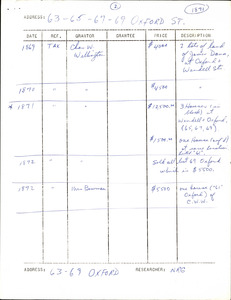 ② 1871
ADDRESS: 63-65-67-69 OXFORD ST.
DATE REF. GRANTOR GRANTEE PRICE DESCRIPTION
1869 TAX Chas. W. $4000 2 lots of land
Wellington of James Dana,
at Oxford &
Wendell St.
1870 " " $4500 "
* 1871 " " $12500 3 Houses (
) at
Wendell & Oxford,
(65, 67, 69)
$1500 one House (unf'd)
at same location
1872 " " Sold all but 69 Oxford
which is $5500.
1872 Bowman $5500 one house ("65"
Oxford) of
C.W.W.
ADDRESS: 63-69 OXFORD RESEARCHER: NRG